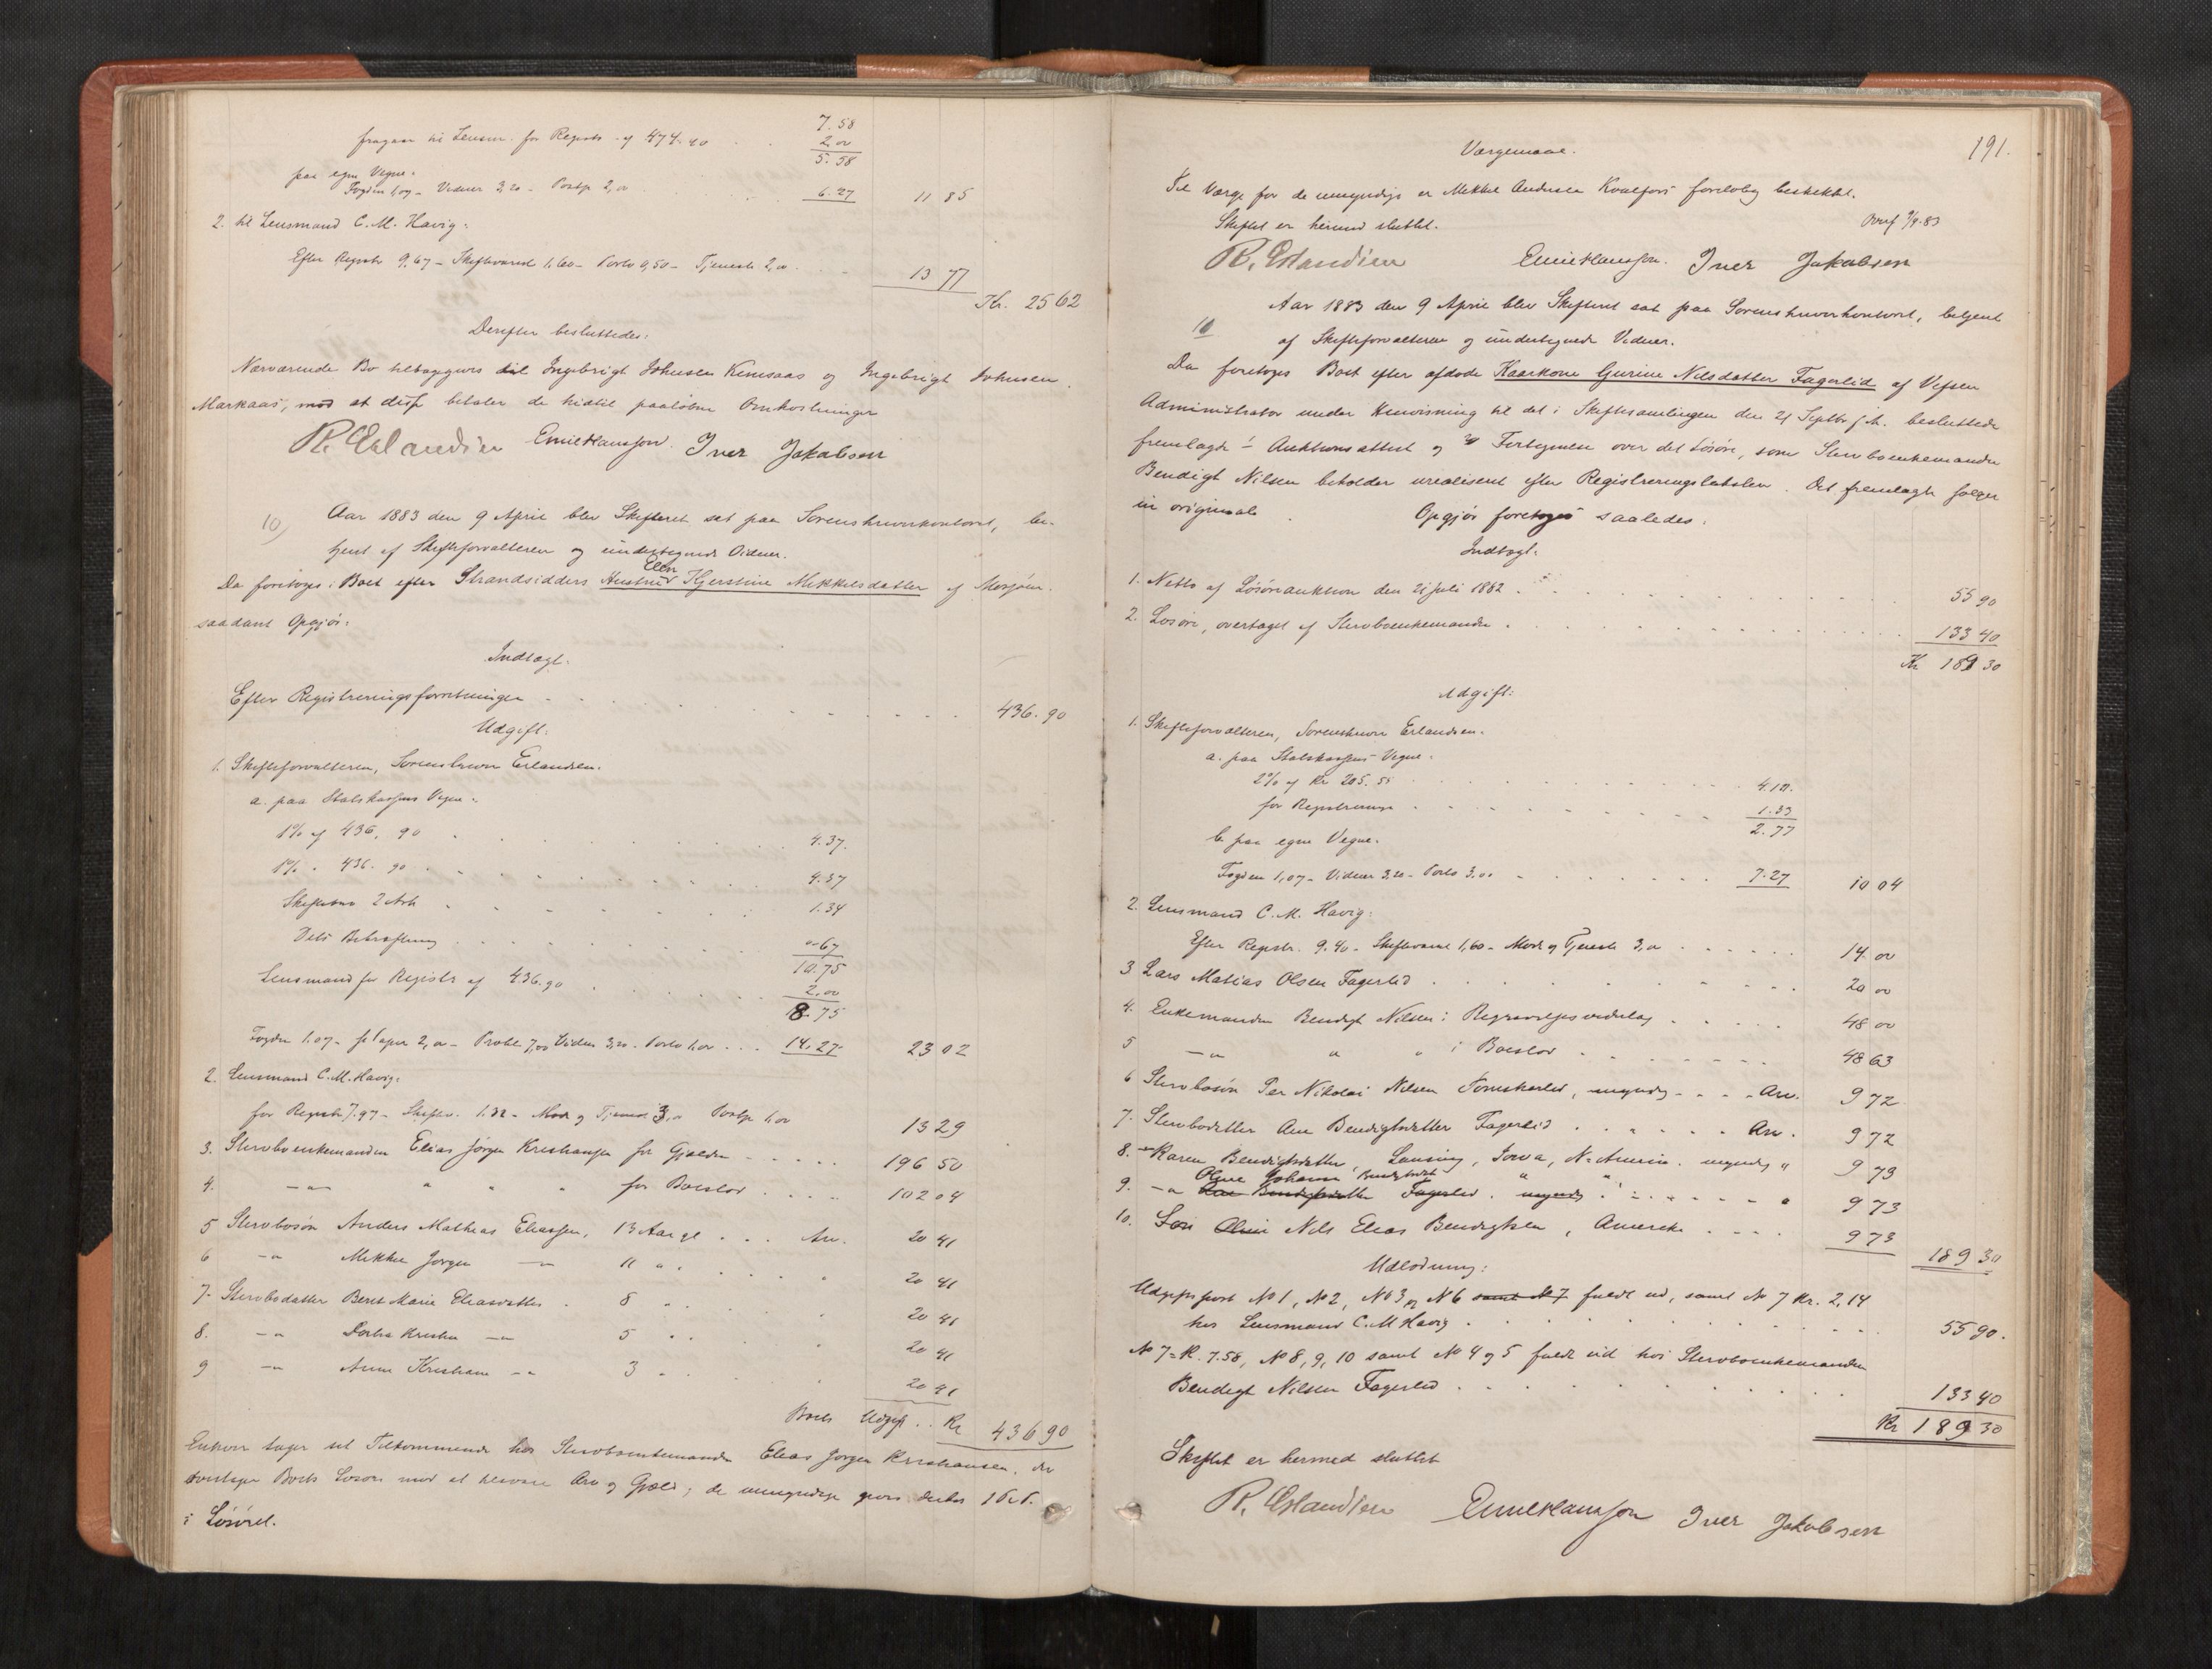 7.58
fragaar til Lensm. for Registr. af 474.40 . . 2,00
5.58
paa egne Vegne:
Fogden 1,07 - Vidner 3,20 - Postp 2,00 . . 6.27 11 85
2. til Lensmand C. M. Havig:
Efter Registr 9,67 - Skiftevarsel 1,60 - Porto 0,50 - Tjeneste 2,00 . . 13 77
Kr. 25 62
Derefter besluttedes:
Nærværende Bo tilbagegives til Ingebrigt Johnsen Kemsaas og Ingebrigt Johnsen
Markaas, mod at disse betaler de hidtil paaløbne Omkostninger
R. Erlandsen Emil Hansson. Iver Jakobsen
10) Aar 1883 den 9 April blev Skifteret sat paa Sorenskriverkontoret, be-
tjent af Skifteforvalteren og undertegnede Vidner.
Da foretoges i Boet efter Strandsidders Hustru Ellen Kjerstine Mikkelsdatter af Mosjøen
saadant Opgjør:
Indtægt.
Efter Registreringsforretningen . . . 436.90
Udgift:
1. Skifteforvalteren, Sorenskriver Erlandsen.
a. paa Statskassens Vegne.
1% af 436,90 . . . 4.37.
1% . 436.90 . . . 4.37
Skiftebrev 2 Ark . . . 1.34
Dets Bekræftning . . . 0.67
10.75
Lensmand for Registr af 436.90 . . . 2,00
8.75
Fogden 1.07 - 2,00 - Protok 7,00 Vidner 3,20 - Porto 1,00 . . . 14.27 23 02
2. Lensmand C. M. Havig:
for Registr 7.97 - Skiftev. 1.32 - Mode og Tjeneste 3,00 Postp 1,00 13 29
3. Stervboenkemanden Elias Jørgen Kristiansen for Gjælden . . . 196 50
4. —"— " " " for Boeslod . . . 102 04
5 Stervbosøn Anders Mathias Eliassen, 13 Aar gl . . . Arv. 20 41
6 —"— Mikkel Jørgen —"— 11 " . . " 20 41
7. Stervbodatter Beret Marie Eliasdatter . 8 " . . " 20 41
8. —"— Dorthea Kristine —"— 5 " . . " 20 41
9 —"— Anne Kristiane —"— 3 " . . " 20 41
Boets Udgift . . Kr 436 90
Enhver tager sit Tilkommende hos Stervboenkemanden Elias Jørgen Kristiansen, der
overtager Boets Løsøre mod at tilsvare Arv og Gjæld; de umyndige gives derhos 1 Pr.
i Løsøret.
191.
Værgemaal.
Til Værge for de umyndige er Mikkel Andersen Kvalfors foreløbig beskikket.
Skiftet er hermed sluttet. Brev 9/4.83
R. Erlandsen Emil Hansson. Iver Jakobsen
10 Aar 1883 den 9 April blev Skifteret sat paa Sorenskriverkontoret, betjent
af Skifteforvalteren og undertegnede Vidner.
Da foretoges Boet efter afdøde Kaarkone Gurine Nilsdatter Fagerlid af Vefsen
Administrator under Henvisning til det i Skiftesamlingen den 21 Septbr f. A. besluttede
fremlagde 1) Auktionsattest og 2) Fortegnelse over det Løsøre, som Stervboenkemanden
Bendigt Nilsen beholder urealiseret efter Registreringstaksten. Det fremlagte følger
in originale. Opgjør foretoges saaledes:
Indtægt:
1. Netto af Løsøreauktion den 21 Juli 1882 . . . 55 90
2. Løsøre, overtaget af Stervboenkemanden . . . 133 40
Kr 189 30
Udgift:
1. Skifteforvalteren, Sorenskriver Erlandsen.
a. paa Statskassens Vegne.
2% af Kr 205.55 . . . 4.10.
for Registrering . . . 1.33
2.77
b. paa egne Vegne.
Fogden 1,07 - Vidner 3,20 - Porto 3,00 . . . 7.27 10 04
2. Lensmand C. M. Havig:
Efter Registr. 9.40 - Skiftevarsel 1,60 - Mode og Tjeneste 3,00 . . . 14 00
3. Lars Matias Olsen Fagerlid . . . 20 00
4. Enkemanden Bendigt Nilsen i Begravelsesvederlag . . . 48 00
5 —"— " " i Boeslod . . . 48 63
6 Stervbosøn Per Nikolai Nilsen Forneskarlid, myndig . . . Arv. 9 72
7. Stervbodatter Ane Bendigtsdatter Fagerlid . . . Arv. 9 72
8. —"— Karen Bendigtsdatter, Lansing, Iowa, N. Amerika. myndig " 9 73
Oline Johanna Bendigtsdt " "
9. —"— Ane Bendigtsdatter Fagerlid. myndig . . . " 9 73
10. Søn Oluii Nils Elias Bendigtsen, Amerika . . . 9 73
189 30
Udlodning:
Udgiftspost No 1, No 2, No 3 og No 6 samt No 7 fuldt ud, samt No 7 Kr. 2,14
hos Lensmand C. M Havig . . . 55 90.
No 7 = K. 7.58, No 8, 9, 10 samt No 4 og 5 fuldt ud hos Stervboenkemanden
Bendigt Nilsen Fagerlid . . . 133 40
Kr 189 30
Skiftet er hermed sluttet
R. Erlandsen Emil Hansson Iver Jakobsen